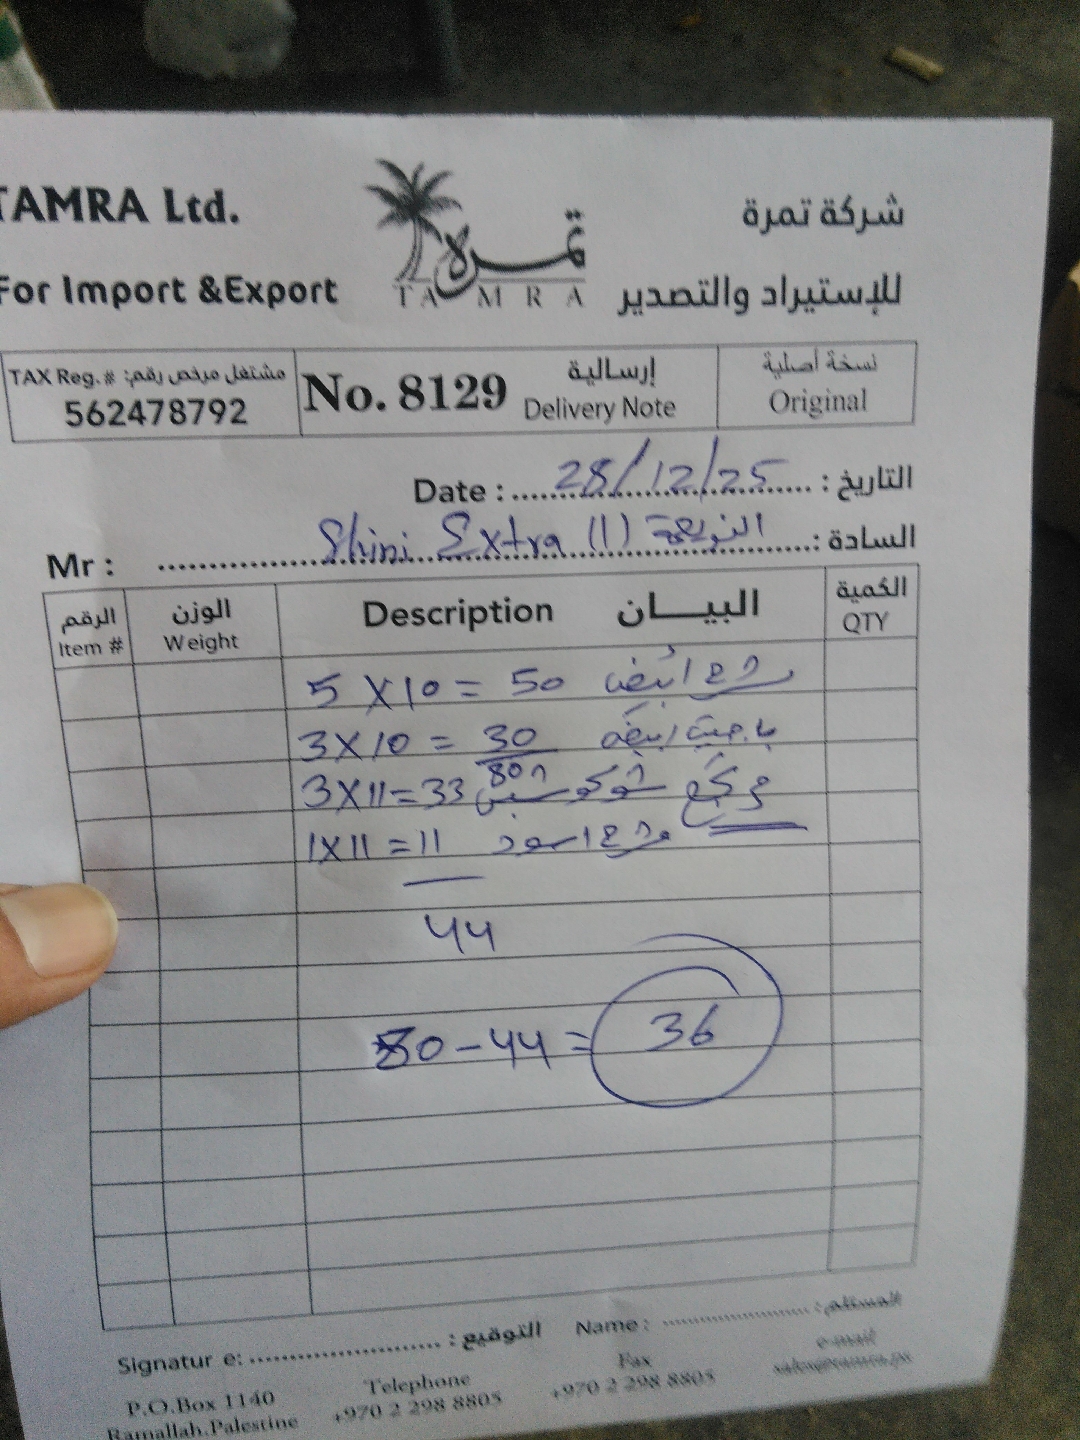 TAMRA Ltd.
شركة تمرة
For Import &Export
للإستيراد والتصدير
تمرة
TAMRA
TAX Reg. # مشتغل مرخص رقم:
562478792
No. 8129
إرسالية
Delivery Note
نسخة أصلية
Original
Date : 28/12/25 التاريخ :
Mr : Shini Extra (1) السادة :
الرقم
Item #
الوزن
Weight
Description البيـــان
الكمية
QTY
5 X 10 = 50
3 X 10 = 30
80
3 X 11 = 33
1 X 11 = 11 اسود
44
80 - 44 = 36
Signatur e: التوقيع :
Name : المستلم :
P.O.Box 1140
Ramallah.Palestine
Telephone
+970 2 298 8805
Fax
+970 2 298 8805
e-mail